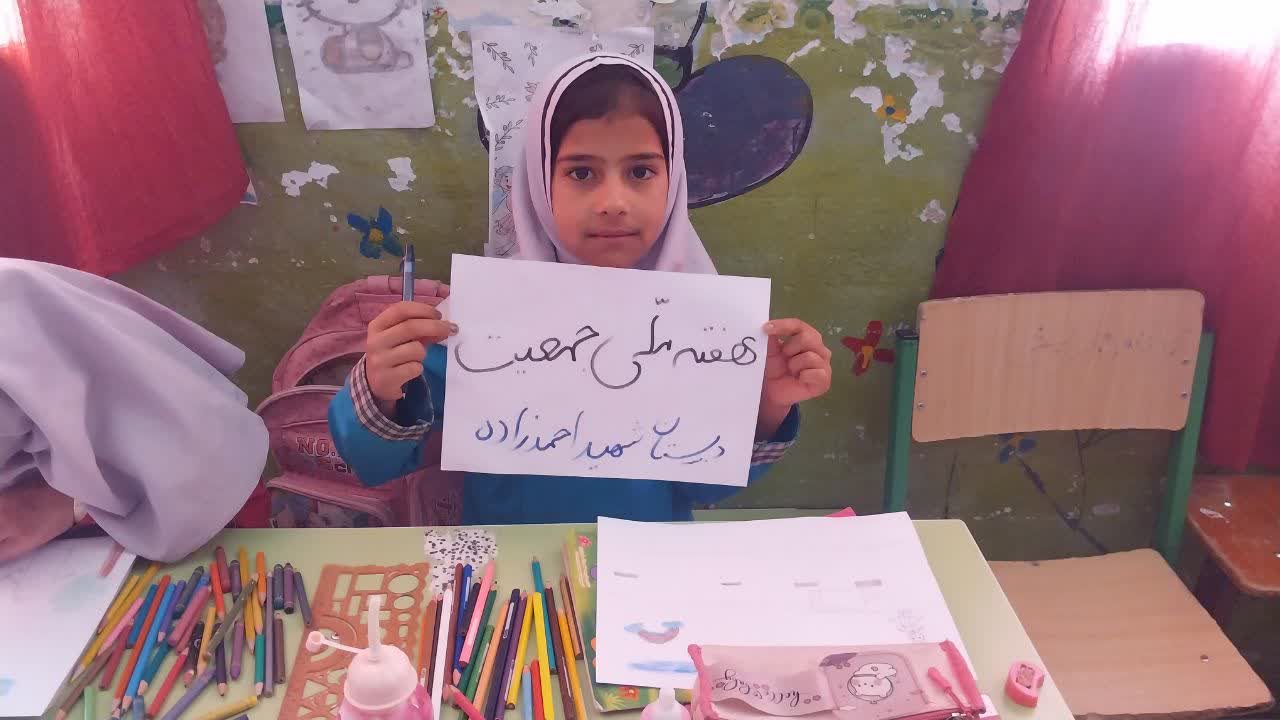 هفته ملّی جمعیت
دبیرستان شهید احمدزاده
NO.